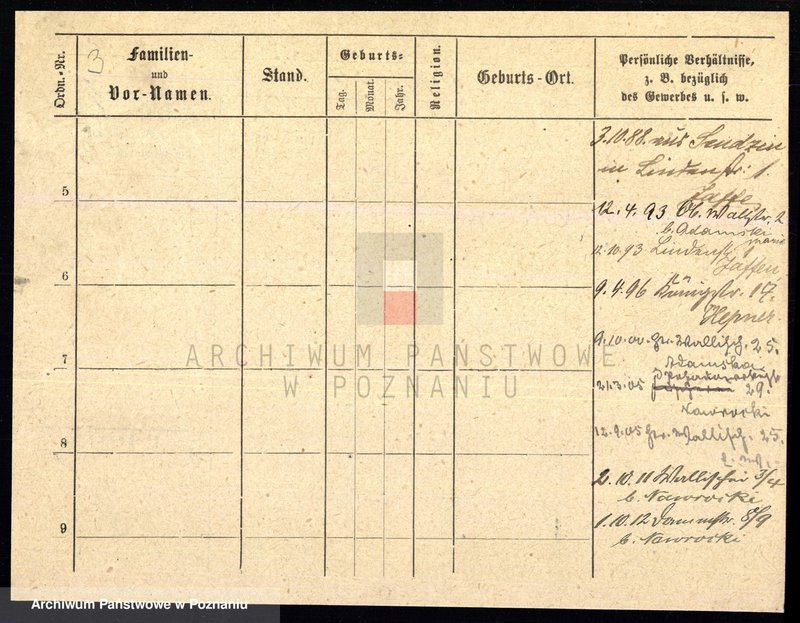 Ordn.-Nr.
3
Familien-
und
Vor-Namen.
Stand.
Geburts-
Tag.
Monat.
Jahr.
Religion.
Geburts-Ort.
Persönliche Verhältnisse,
z. B. bezüglich
des Gewerbes u. s. w.
3.10.88. aus
in Lindenstr: 1.
Jaffe
5
12.4.93 Ob. Wallstr. 2
b. Adamski
12.10.93 Lindenstr 1
Jaffen
6
9.4.96 Königstr. 17.
Hepner
9.10.00. Gr. Wallisch. 25.
Adamska
7
21.3.05 29.
Nawrocki
12.9.05 Gr. Wallisch. 25.
8
2.10.11 Wallischei 3/4
b. Nawrocki
9
1.10.12 Dammstr. 8/9
b. Nawrocki
ARCHIWUM PAŃSTWOWE
W POZNANIU
Archiwum Państwowe w Poznaniu